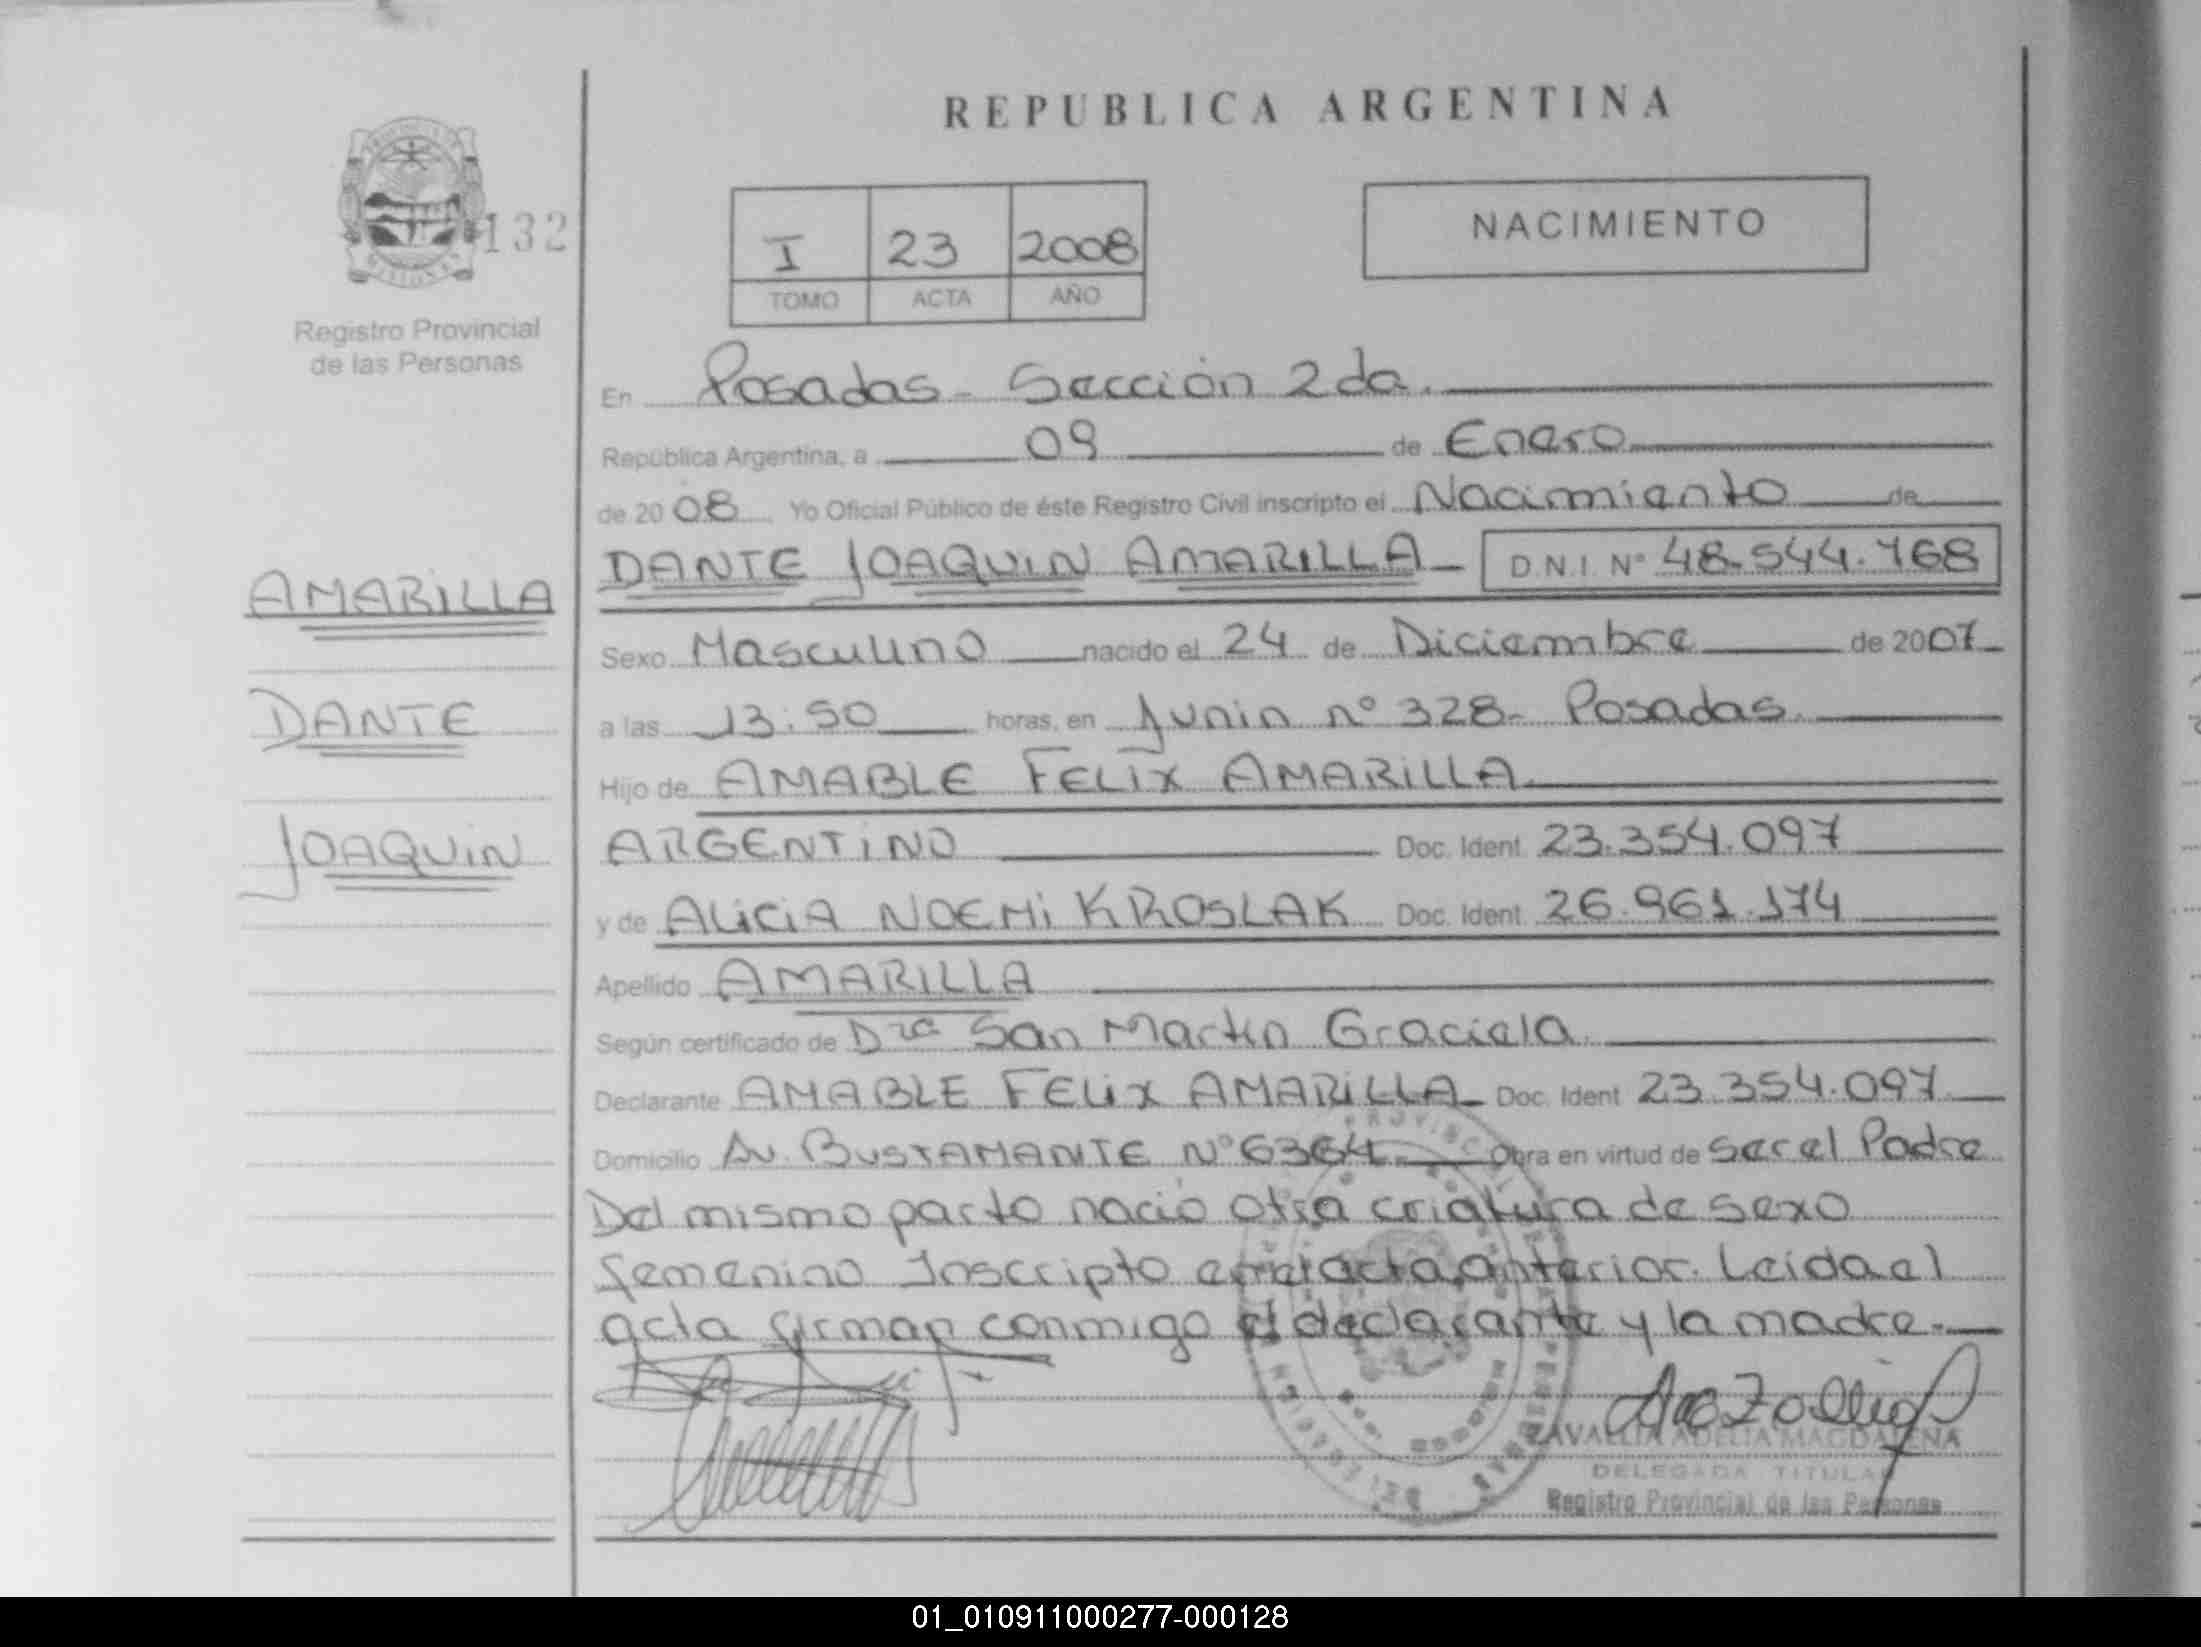 REPUBLICA ARGENTINA
132
Registro Provincial
de las Personas
I 23 2008
TOMO ACTA AÑO
NACIMIENTO
En Posadas - Sección 2da.
República Argentina, a 09 de Enero
de 2008 Yo Oficial Público de éste Registro Civil inscripto el Nacimiento de
DANTE JOAQUIN AMARILLA - D.N.I. Nº 48.544.768
AMARILLA
DANTE
JOAQUIN
Sexo Masculino nacido el 24 de Diciembre de 2007
a las 13:50 horas, en Junin nº 328- Posadas.
Hijo de AMABLE FELIX AMARILLA
ARGENTINO Doc. Ident. 23.354.097
y de ALICIA NOEMI KROSLAK Doc. Ident. 26.961.174
Apellido AMARILLA
Según certificado de Dra San Martin Graciela
Declarante AMABLE FELIX AMARILLA Doc. Ident. 23.354.097
Domicilio Av. BUSTAMANTE Nº 6364 Obra en virtud de ser el Padre
Del mismo parto nació otra criatura de sexo
femenino Inscripto en el acta anterior. Leida el
acta firman conmigo el declarante y la madre.-
ZAVALLIA ADELIA MAGDALENA
DELEGADA TITULAR
Registro Provincial de las Personas
01_010911000277-000128